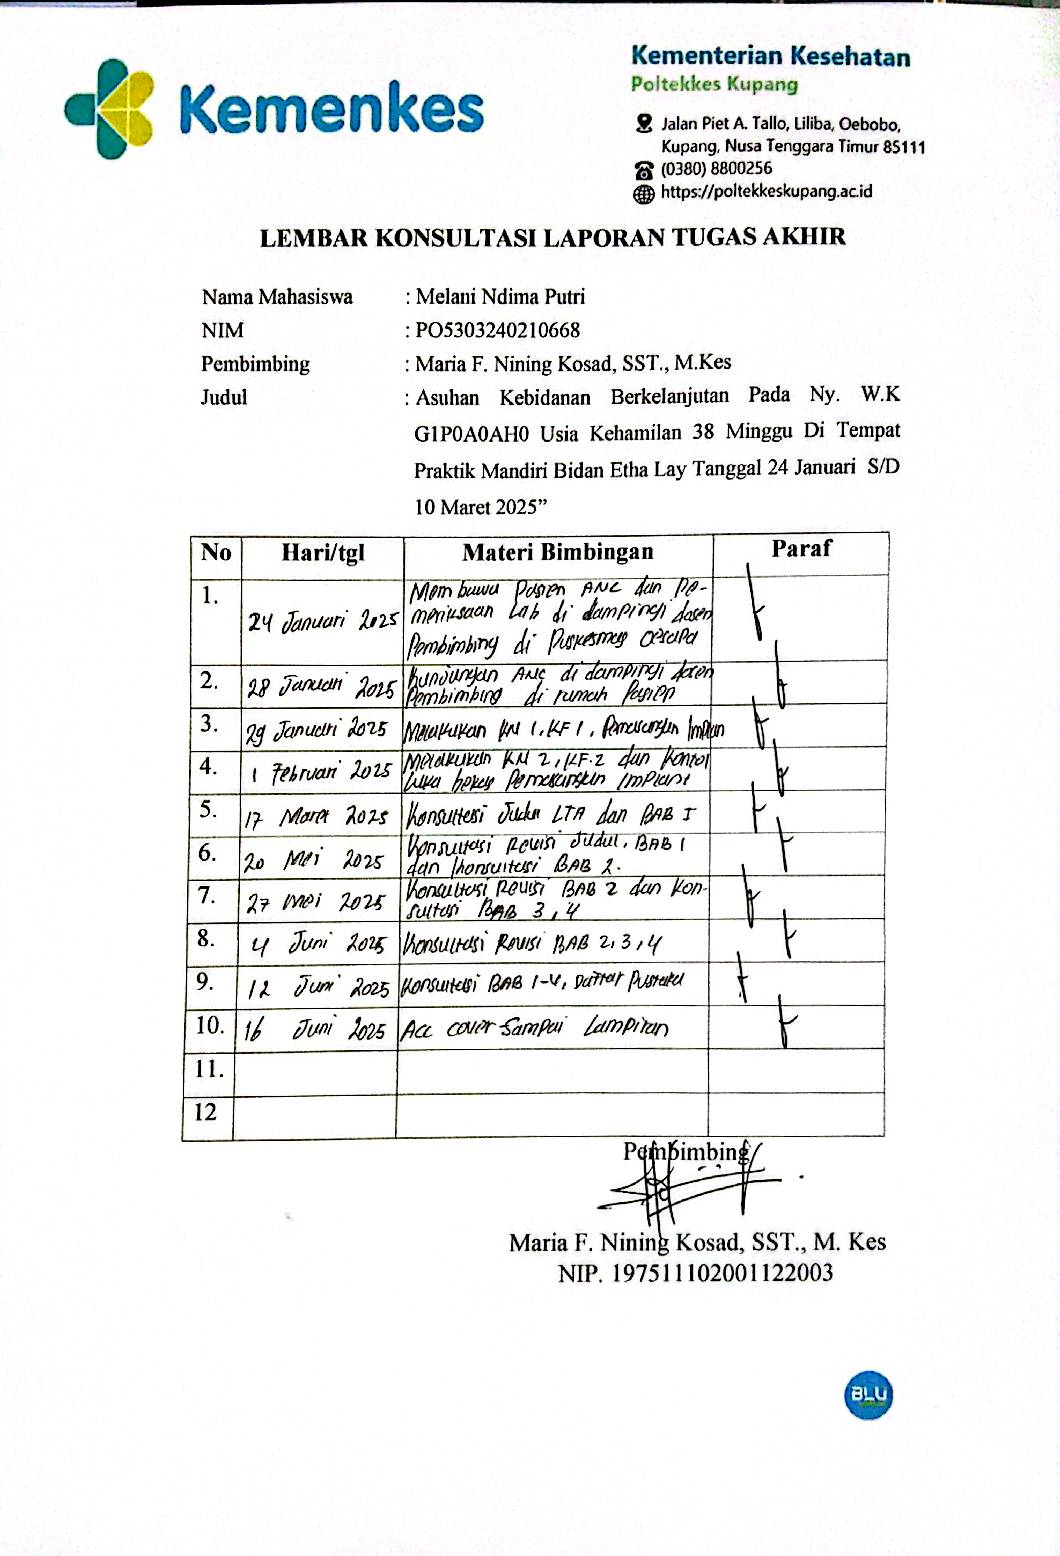 Kemenkes
Kementerian Kesehatan
Poltekkes Kupang
Jalan Piet A. Tallo, Liliba, Oebobo,
Kupang, Nusa Tenggara Timur 85111
(0380) 8800256
https://poltekkeskupang.ac.id
LEMBAR KONSULTASI LAPORAN TUGAS AKHIR
Nama Mahasiswa : Melani Ndima Putri
NIM : PO5303240210668
Pembimbing : Maria F. Nining Kosad, SST., M.Kes
Judul : Asuhan Kebidanan Berkelanjutan Pada Ny. W.K
G1P0A0AH0 Usia Kehamilan 38 Minggu Di Tempat
Praktik Mandiri Bidan Etha Lay Tanggal 24 Januari S/D
10 Maret 2025”
No Hari/tgl Materi Bimbingan Paraf
1. 24 Januari 2025 Membawa Pasien ANC dan Pe-
meriksaan Lab di dampingi dosen
Pembimbing di Puskesmas Oesapa
2. 28 Januari 2025 Kunjungan ANC di dampingi dosen
Pembimbing di rumah Pasien
3. 29 Januari 2025 Melakukan KN 1, KF 1, Pemasangan Implan
4. 1 Februari 2025 Melakukan KN 2, KF.2 dan Kontrol
luka bekas Pemasangan Implant
5. 17 Maret 2025 Konsultasi Judul LTA dan BAB I
6. 20 Mei 2025 Konsultasi Revisi Judul, BAB 1
dan Konsultasi BAB 2.
7. 27 Mei 2025 Konsultasi Revisi BAB 2 dan Kon-
sultasi BAB 3, 4
8. 4 Juni 2025 Konsultasi Revisi BAB 2, 3, 4
9. 12 Juni 2025 Konsultasi BAB 1-4, Daftar Pustaka
10. 16 Juni 2025 Acc cover Sampai Lampiran
11.
12
Pembimbing
Maria F. Nining Kosad, SST., M. Kes
NIP. 197511102001122003
BLU